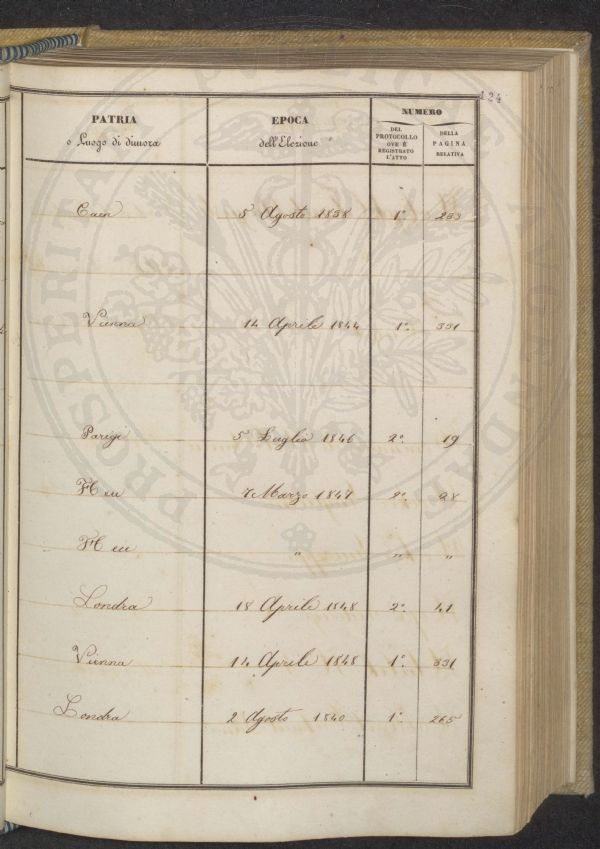 124
PATRIA
o Luogo di dimora
EPOCA
dell'Elezione
NUMERO
DEL
PROTOCOLLO
OVE È
REGISTRATO
L'ATTO
DELLA
PAGINA
RELATIVA
Caen 5 Agosto 1838 1° 233
Vienna 14 Aprile 1844 1°. 331
Parigi 5 Luglio 1846 2° 19
7 Marzo 1847 2° 28
" " "
Londra 18 Aprile 1848 2° 41
Vienna 14 Aprile 1848 1° 331
Londra 2 Agosto 1840 1° 265
PROSPERITATI PUBLICAE AUGENDAE